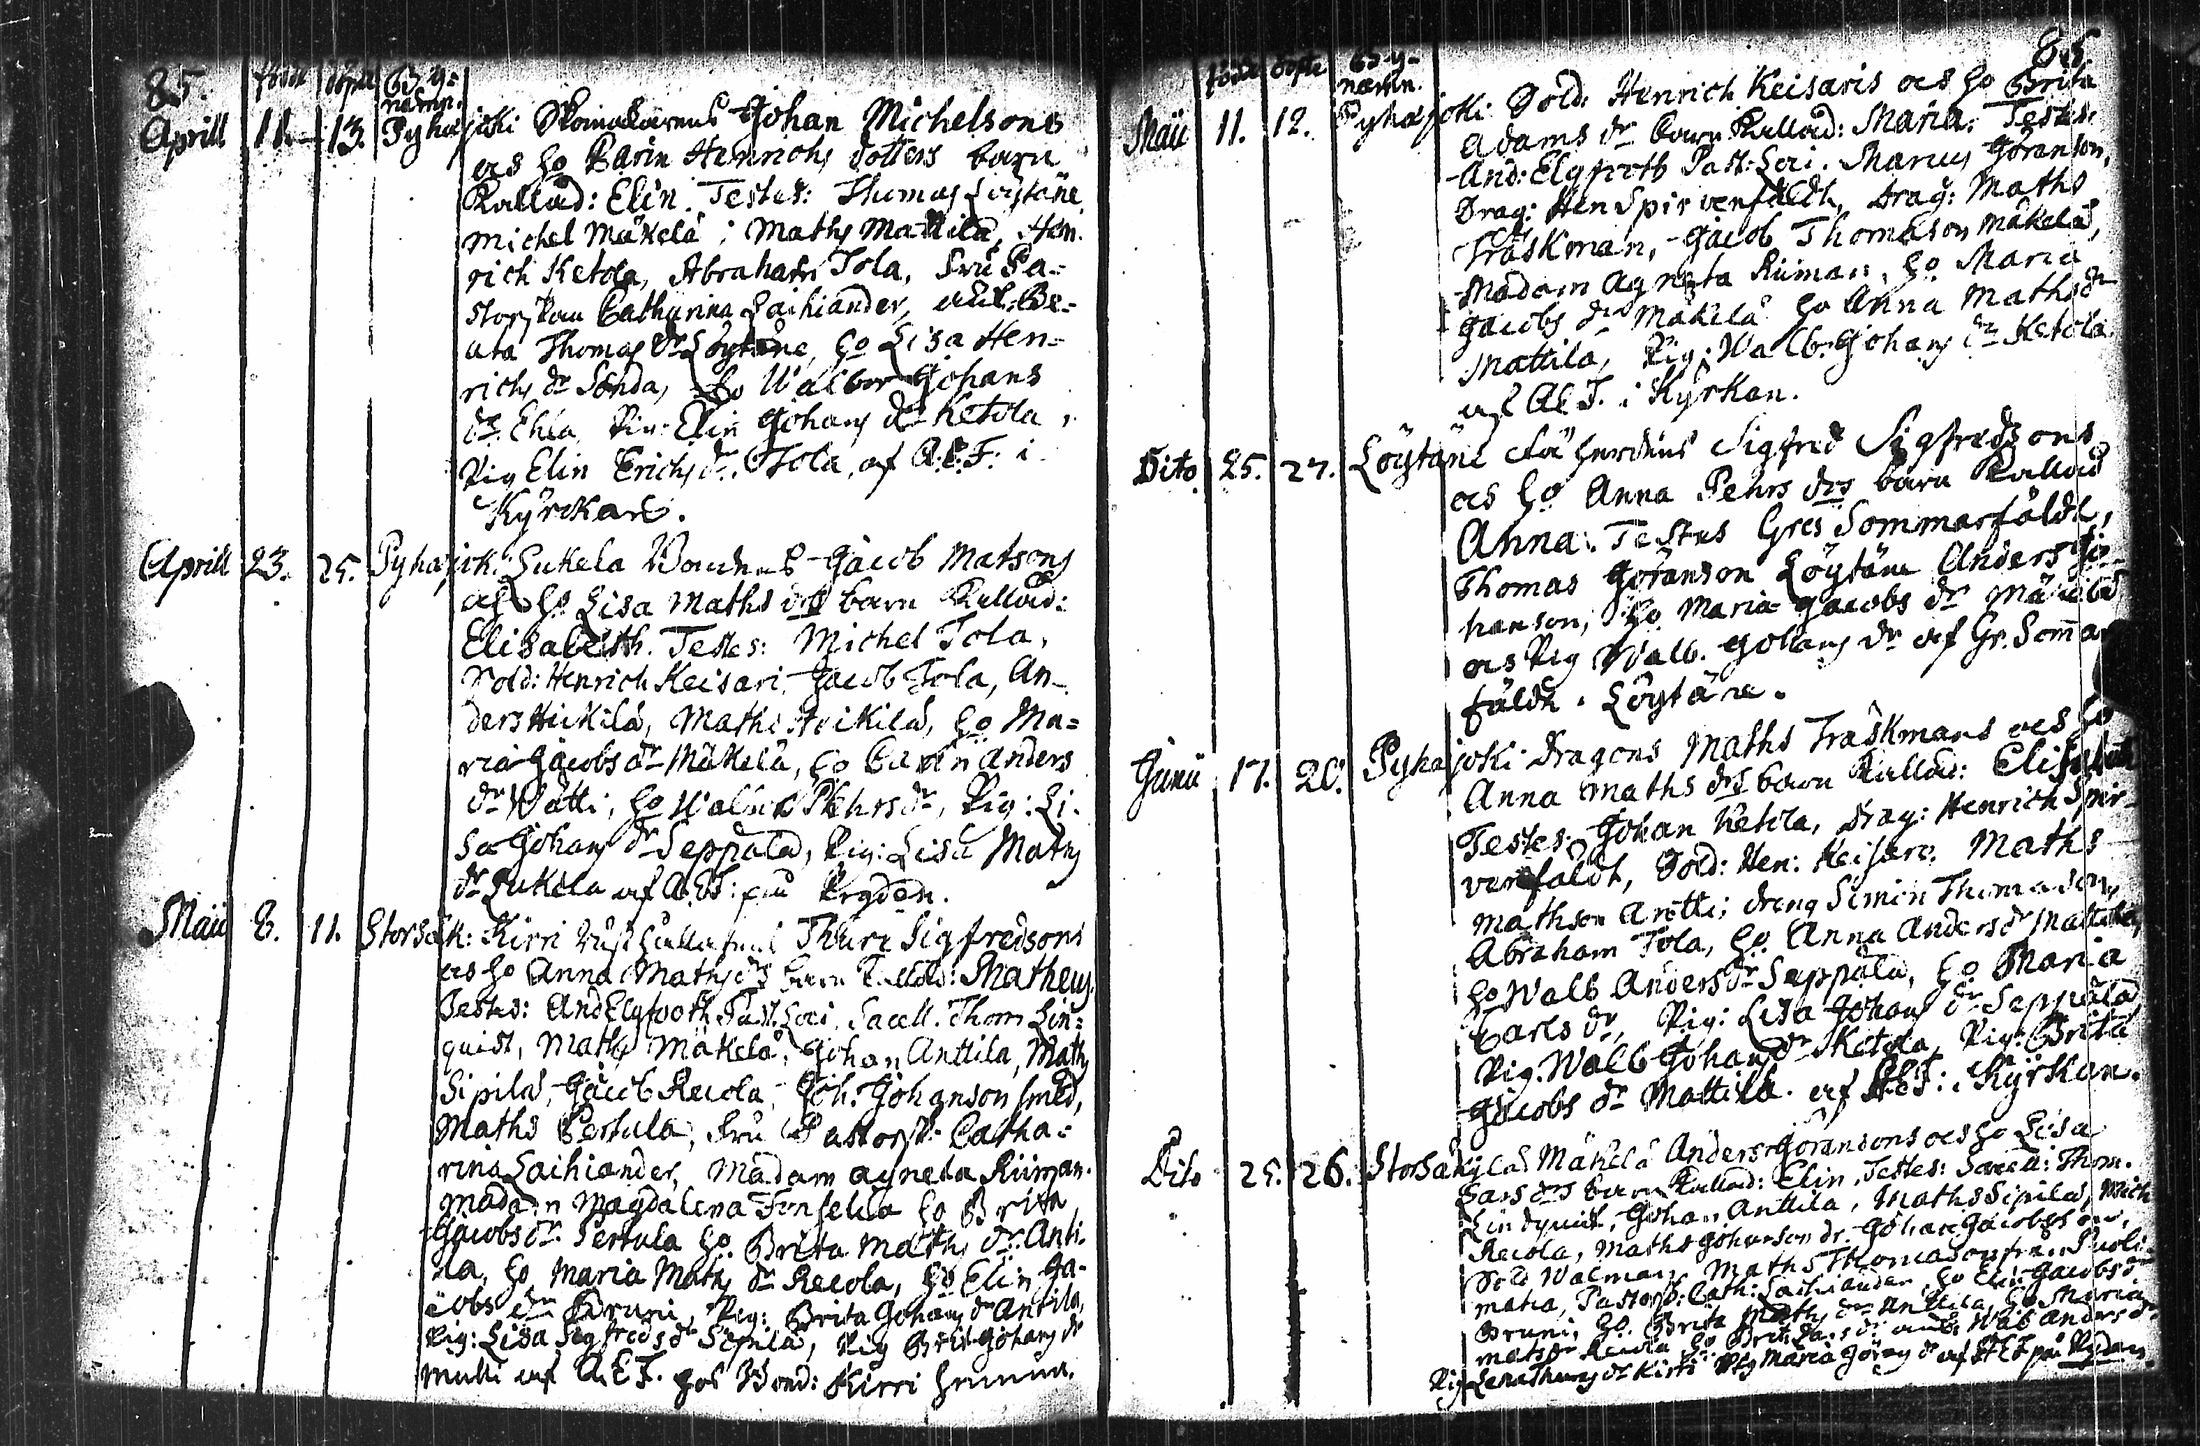 85.
född döpt By-
namn.
Aprill 11. 13. Pyhajoki Skomakarens Johan Michelsons
och ho Karin Henrichs dotters barn
Kallad: Elin. Testes: Thomas Löytäne,
Michel Mäkelä, Maths Mattila, Hen-
rich Ketola, Abraham Tola, Fru Pa-
storskan Catharina Lachiander, Be-
ata Thomas dr Löytäne, ho Lisa Hen-
richs dr Sonda, ho Walbor Johans
dr. Ehla, Pig: Elin Johans dr Ketola,
Pig Elin Erichs dr. Tola, af A.E.F. i
Kyrckan.
Aprill 23. 25. Pyhajok: Lukela Bondens Jacob Matsons
och ho Lisa Maths drs barn Kallad:
Elisabeth. Testes: Michel Tola,
Sold: Henrich Keisari, Jacob Tola, An-
ders Heikilä, Maths Heikilä, ho Ma-
ria Jacobs dr Mäkelä, ho Carin Anders
dr Watti, ho Walb Pehrs dr, Pig: Li-
sa Johans dr Seppälä, Pig: Lisa Maths
dr Lukela af A.E.F: på Prgden.
Maii 8. 11. Storsåk: Kirri Thure Sigfredsons
och ho Anna Maths drs barn Kallad: Matheus.
Testes: And Elgfooth Past. Loci, Sacell. Thom Lin-
quist, Maths Mäkelä, Johan Anttila, Maths
Sipilä, Jacob Recola, Joh: Johanson smed,
Maths Pertula, Fru Pastorsk: Catha-
rina Lachiander, Madam Agneta Riiman.
Madam Magdalena Fonselia ho Brita
Jacobs dr. Pertula ho. Brita Maths dr. Anti-
la, ho Maria Maths dr Recola, ho Elin Ja-
cobs dr Bruni, Pig: Brita Johans dr Antila,
Pig: Lisa Sigfreds dr Sipilä, Pig Brita Johans dr
Multi af A.E.F. hos Bond: Kirri hemma.
85
född döpt By-
namn.
Maii 11. 12. Pyhajoki Sold: Henrich Keisaris och ho Brita
Adams dr barn Kallad: Maria: Testes:
And: Elgfooth Past: Loci. Marcus Göranson,
Drag: Hen Spirvenfäldt, Drag: Maths
Träskman, Jacob Thomason Mäkelä,
Madam Agneta Riiman, ho Maria
Jacobs dr Mäkelä ho Anna Maths dr
Mattila, Pig: Walb: Johans dr Ketola
af A.E.F. i Kyrkan.
Dito 25. 27. Löytäne Sigfred Sigfredsons
och ho Anna Pehrs drs barn Kallad
Anna: Testes Gres Sommarfäldt,
Thomas Göranson Löytäne Anders Jo-
hanson, ho Maria Jacobs dr Mäkelä
och Pig Walb. Johans dr af Gr. Somar
fäldt. Löytäne.
Junii 17. 20. Pyhajoki Dragons Maths Träskmans och ho
Anna Maths drs barn Kallad: Elisabet
Testes: Johan Ketola, Drag: Henrich Spir-
venfäldt, Sold: Hen: Keisari, Maths
Mathson Arotti; dreng Simin Thomason,
Abraham Tola, ho Anna Anders dr Mattila,
ho Walb Anders dr Seppälä, ho Maria
Carls dr, Pig: Lisa Johans dr Seppälä
Pig. Walb Johans dr Ketola, Pig: Brita
Jacobs dr Mattila. af A.E.F: i Kyrkan.
Dito 25. 26. Storsåkylä Mäkelä Anders Göransons och ho Lisa
Lars drs barn Kallad: Elin, Testes: Sacell: Thom.
Lindquist, Johan Anttila, Maths Sipilä, Mich
Recola, Maths Johanson dr. Johan Jacobson,
Sold Walman, Maths Thomason från Puoli-
matka, Pastorsk: Cath: Lachiander, ho Elin Jacobs dr
Bruni, ho. Brita Maths dr Anttila, ho Maria
Mats dr Recola ho Brita Lars dr Walb Anders dr
Pig: Lena Thures dr Kirri Pig Maria Görans dr af A.E.F på Pgdan.